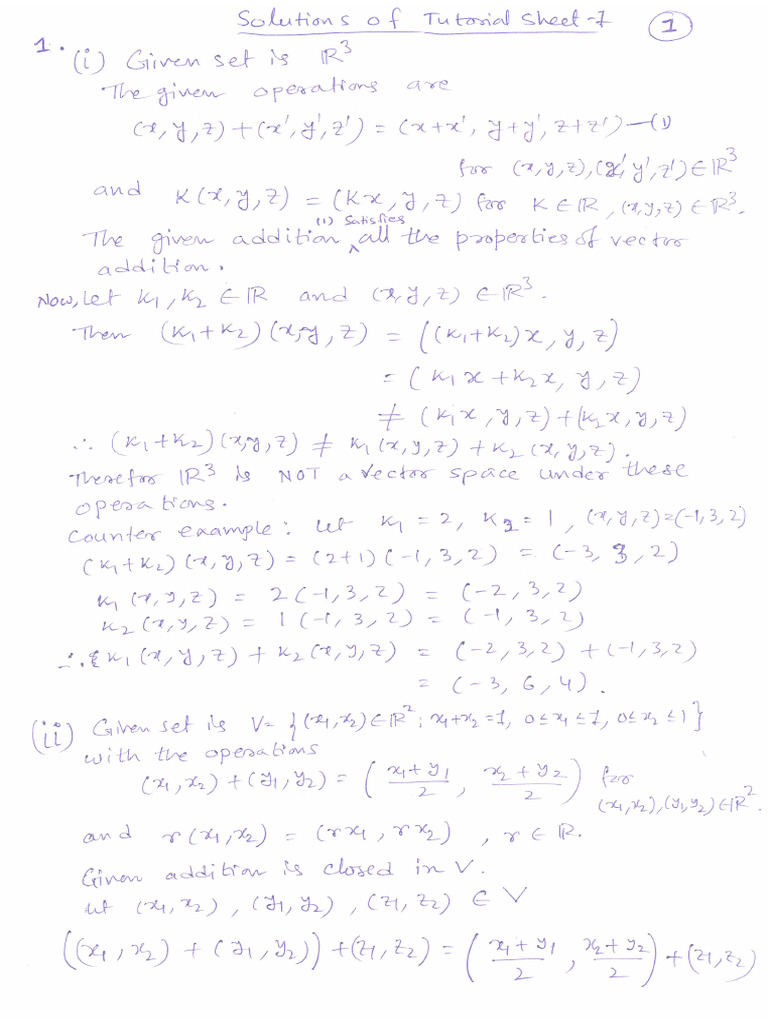 Solutions of Tutorial Sheet-7 (1)
1. (i) Given set is ℝ³
The given operations are
(x, y, z) + (x', y', z') = (x+x', y+y', z+z') —(1)
for (x, y, z), (x', y', z') ∈ ℝ³
and K(x, y, z) = (Kx, y, z) for K ∈ ℝ, (x, y, z) ∈ ℝ³.
The given addition (1) satisfies all the properties of vector
addition.
Now, let K₁, K₂ ∈ ℝ and (x, y, z) ∈ ℝ³.
Then (K₁+K₂)(x, y, z) = ((K₁+K₂)x, y, z)
= (K₁x + K₂x, y, z)
≠ (K₁x, y, z) + (K₂x, y, z)
∴ (K₁+K₂)(x, y, z) ≠ K₁(x, y, z) + K₂(x, y, z).
Therefor ℝ³ is NOT a vector space under these
operations.
Counter example: let K₁ = 2, K₂ = 1, (x, y, z) = (-1, 3, 2)
(K₁+K₂)(x, y, z) = (2+1)(-1, 3, 2) = (-3, 3, 2)
K₁(x, y, z) = 2(-1, 3, 2) = (-2, 3, 2)
K₂(x, y, z) = 1(-1, 3, 2) = (-1, 3, 2)
∴ K₁(x, y, z) + K₂(x, y, z) = (-2, 3, 2) + (-1, 3, 2)
= (-3, 6, 4).
(ii) Given set is V = {(x₁, x₂) ∈ ℝ²; x₁+x₂ = 1, 0 ≤ x₁ ≤ 1, 0 ≤ x₂ ≤ 1}
with the operations
(x₁, x₂) + (y₁, y₂) = ((x₁+y₁)/2, (x₂+y₂)/2) for
(x₁, x₂), (y₁, y₂) ∈ ℝ².
and r(x₁, x₂) = (rx₁, rx₂), r ∈ ℝ.
Given addition is closed in V.
let (x₁, x₂), (y₁, y₂), (z₁, z₂) ∈ V
((x₁, x₂) + (y₁, y₂)) + (z₁, z₂) = ((x₁+y₁)/2, (x₂+y₂)/2) + (z₁, z₂)